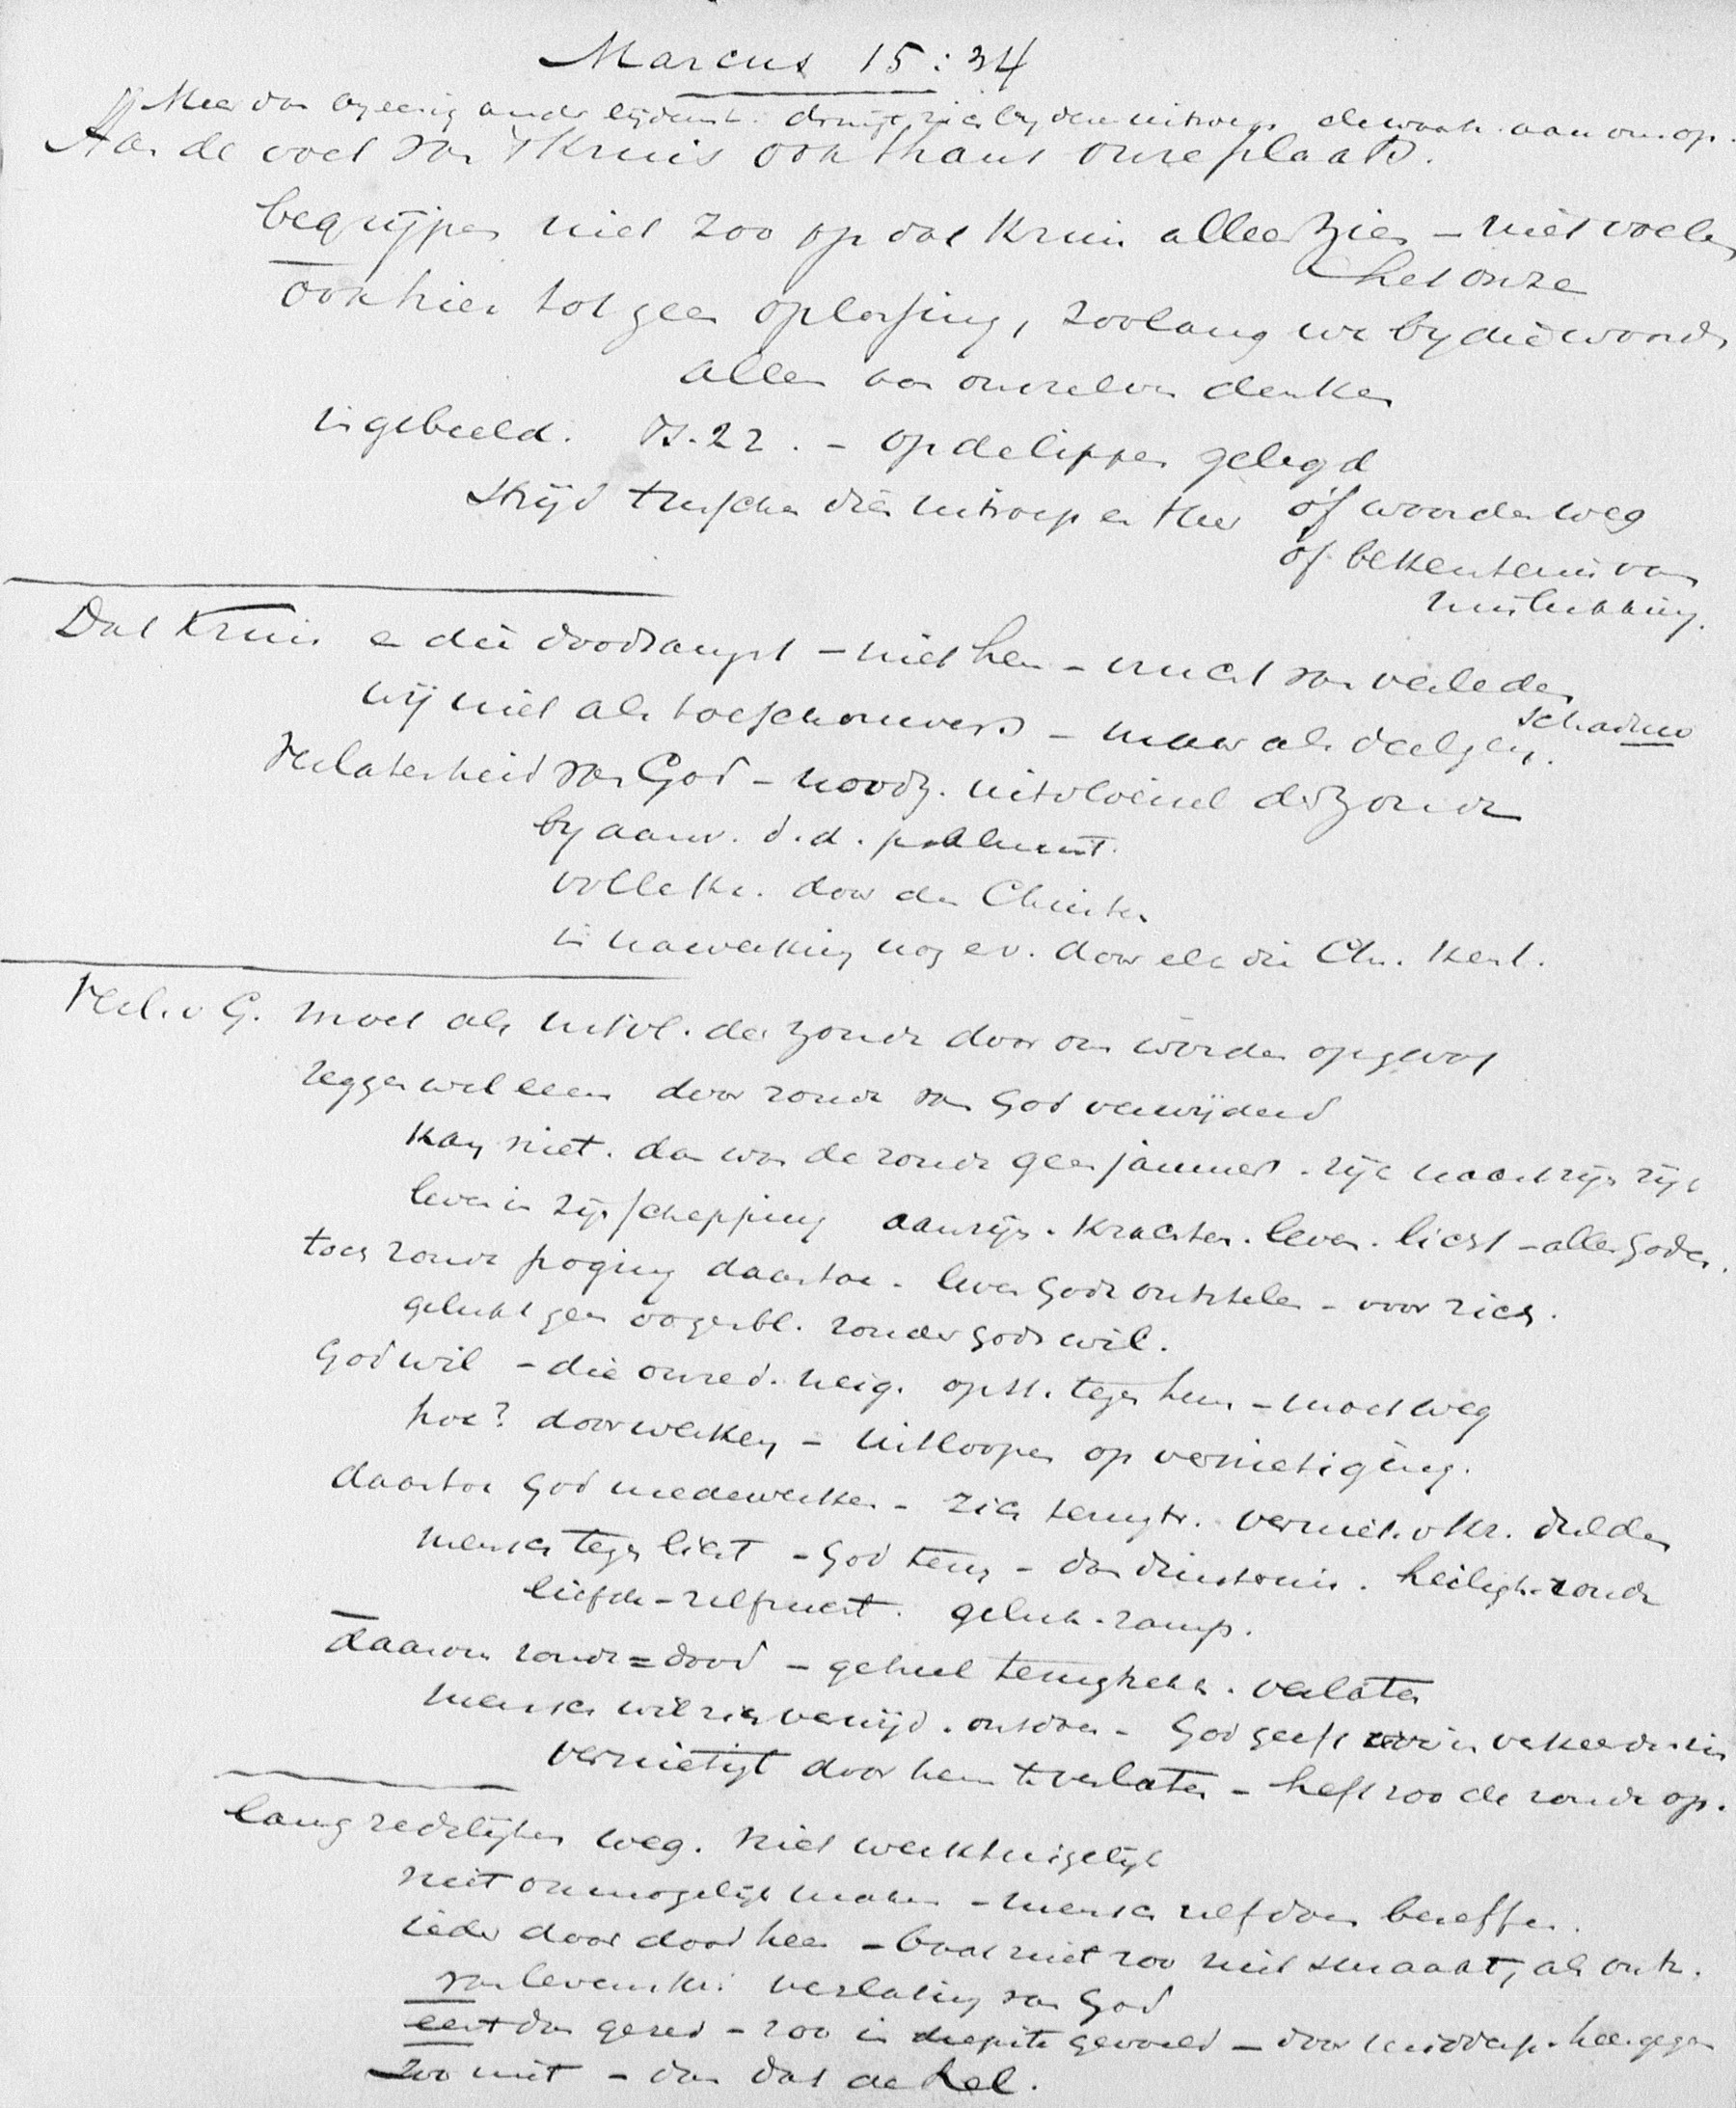 Marcus 15:34
Meer dan by eenig ander lijdensw. dringt zich by dien uitroep de vraag aan ons op.
Aan de voet van 't Kruis ook thans onze plaats.
begrijpen niet zoo op dat Kruis alleen zien – niet voelen
het onze
ook hier tot geen oplossing, zoolang we by die woorden
alleen aan onszelven denken
ingebeeld. Ps. 22. – op de lippen gelegd
strijd tusschen dien uitroep en Hee
of woorden weg
of bekentenis van
mislukking.
Dat Kruis en die doodsangst – niet hem – vrucht van verleden
schaduw
wij niet als toeschouwers – maar als deelgen.
Verlatenheid van God – noodz. uitvloeisel der zonde
by aanv. d. d. psalmist.
volle kr. door den Christus
in nawerking nog ev. door elk die Chr. kent.
Verl. v G. moet als uitvl. der zonde door ons worden opgevat
zeggen wel eens door zonde van God verwijderd
kan niet. dan was de zonde geen jammer. rijk naast zijn rijk
leven in zijn schepping aanwijz. krachten. leven. licht – alles Gods.
toch zonde poging daartoe – leven Gode ontstelen – voor zich.
gelukt geen oogenbl. zonder Gods wil.
God wil – die onred. neig. opst. tegen hem – moet weg
hoe? doorwerken – uitloopen op vernietiging.
daartoe God medewerken – zich terugtr. verniet. v kr. dulden
mensch tegen licht – God terug – dan duisternis. heiligh. zonde
liefde – zelfzucht. geluk – ramp.
daarom zonde = dood – geheel terugtrekk. verlaten
mensch wil zich verwijd. ontdoen – God geeft in verkeerden zin
vernietigt door hem te verlaten – heft zoo de zonde op.
langs redelijken weg. niet werktuigelijk
niet onmogelijk maken – mensch zelf doen beseffen.
ieder door dood heen – baat niet zoo niet smaakt, als ontz.
van levenskr: verlating van God
eerst dan gered – zoo in diepte gevoeld – door midden heengegaan
zoo niet – dan dat de hel.